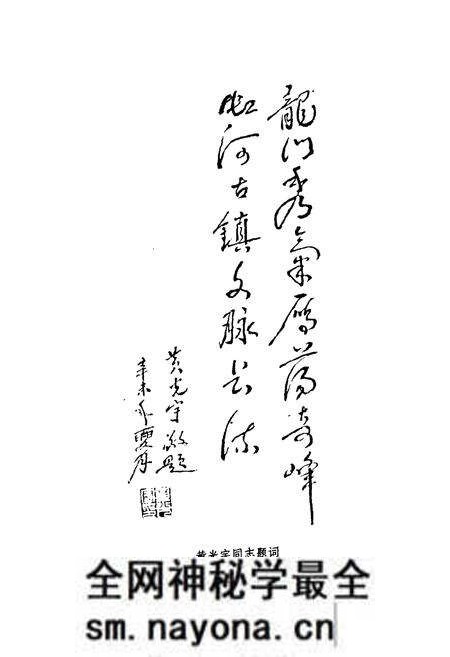 龍门秀氣雁蕩奇峰
虹河古鎮文脉长流
黄光宇敬题
辛未年夏月
黄光宇同志题词
全网神秘学最全
sm.nayona.cn